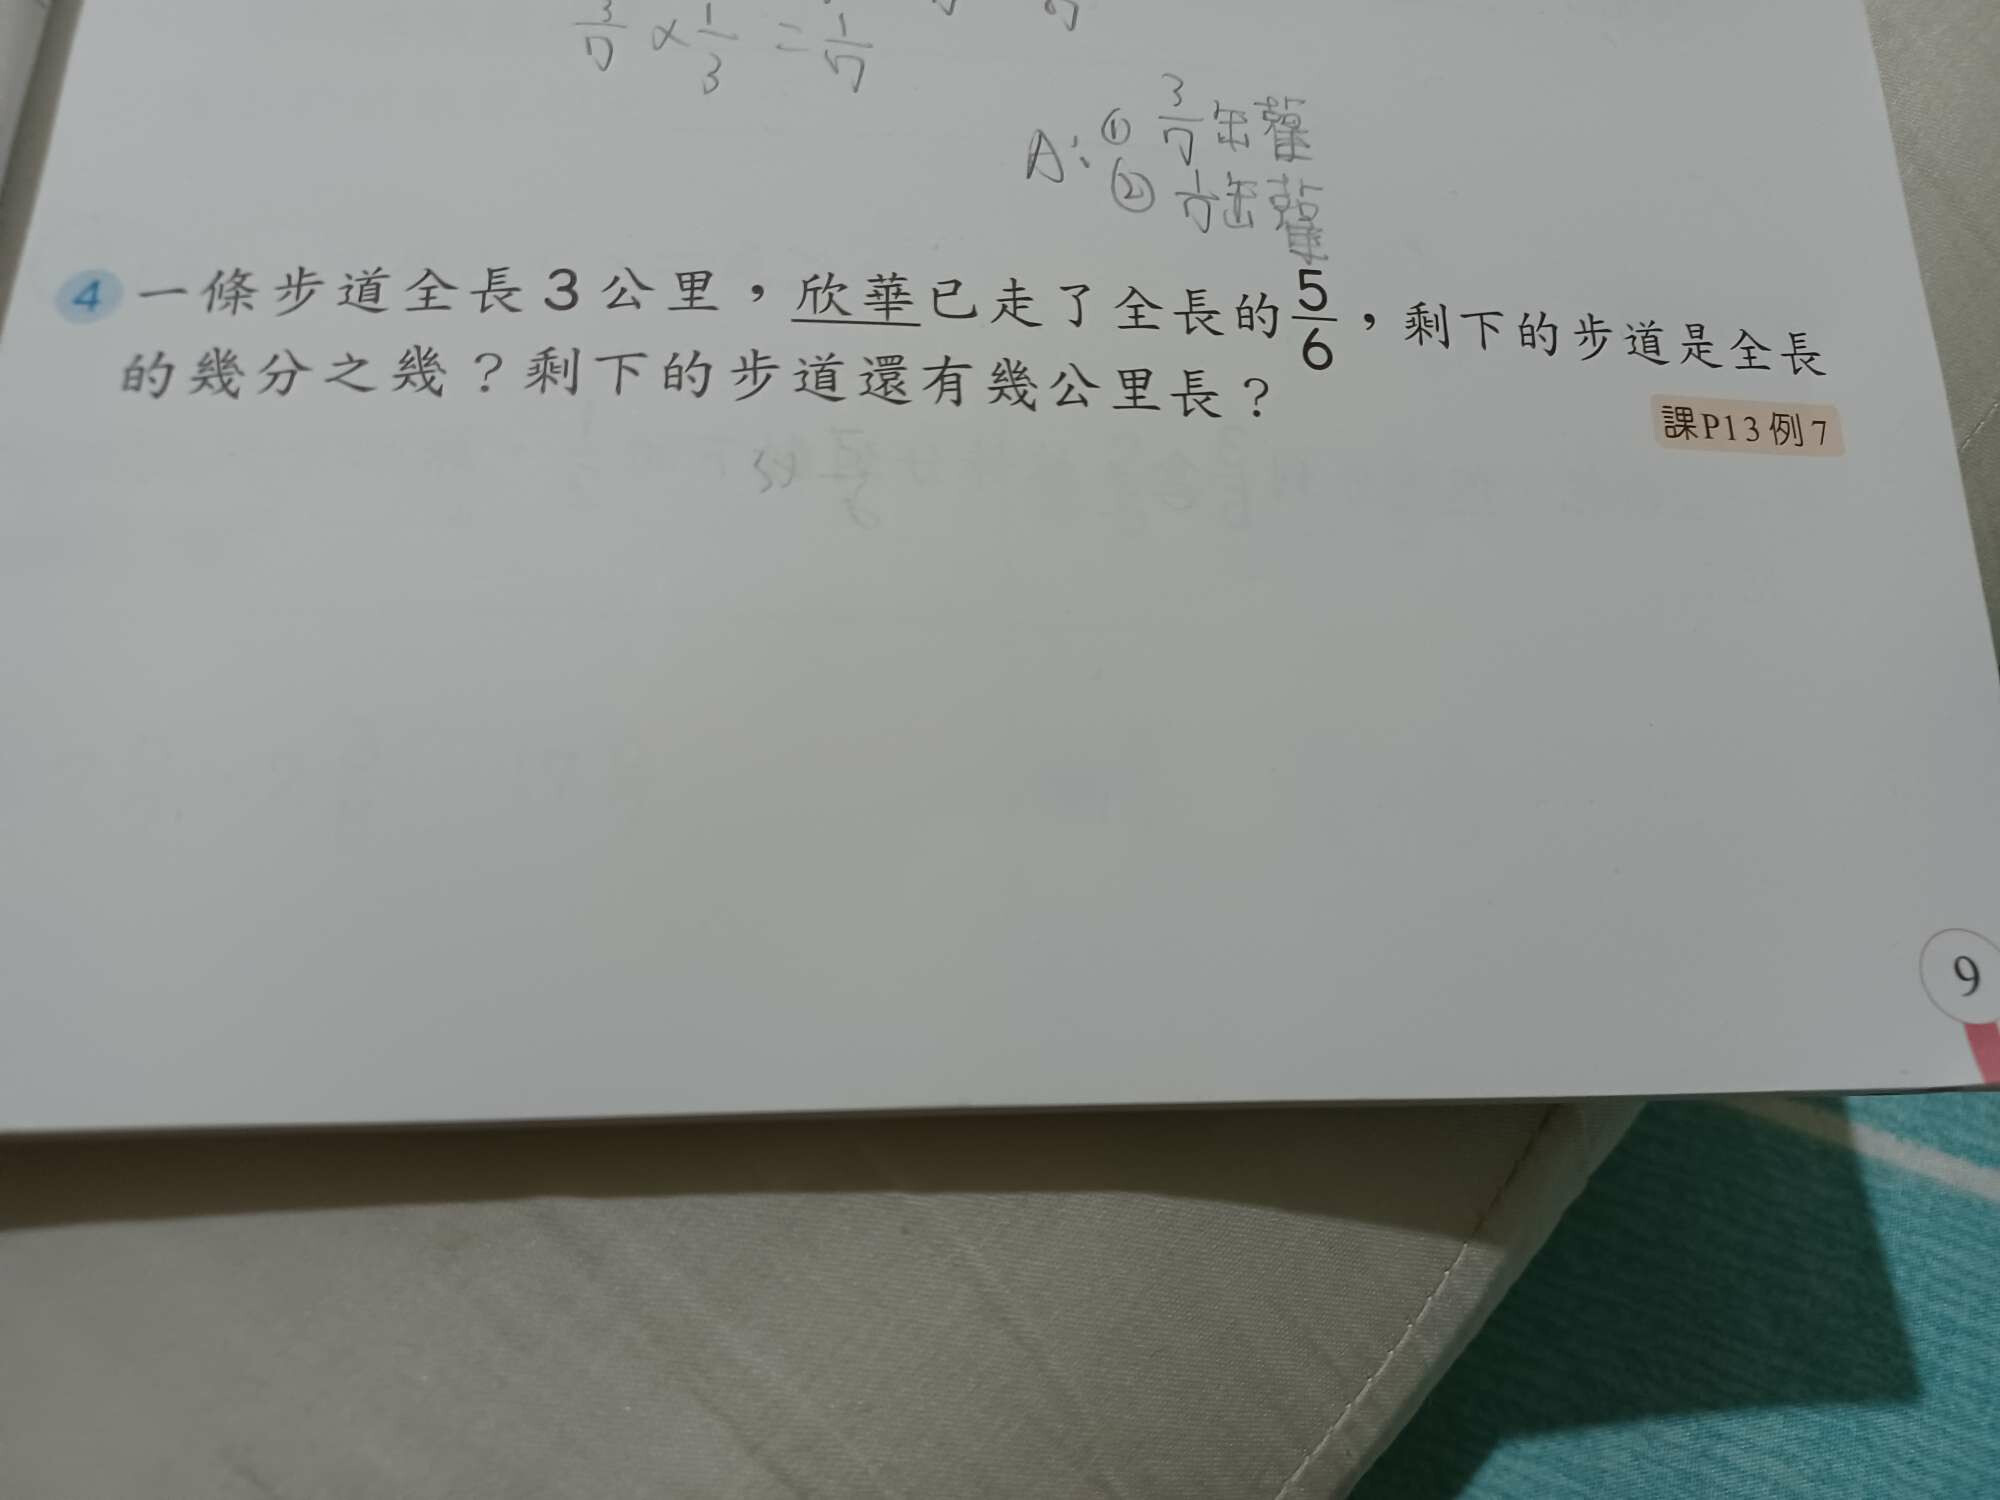 3/7 × 1/3 = 1/7
A: ① 3/7
② 1/7
4 一條步道全長3公里，欣華已走了全長的5/6，剩下的步道是全長
的幾分之幾？剩下的步道還有幾公里長？
課P13例7
9